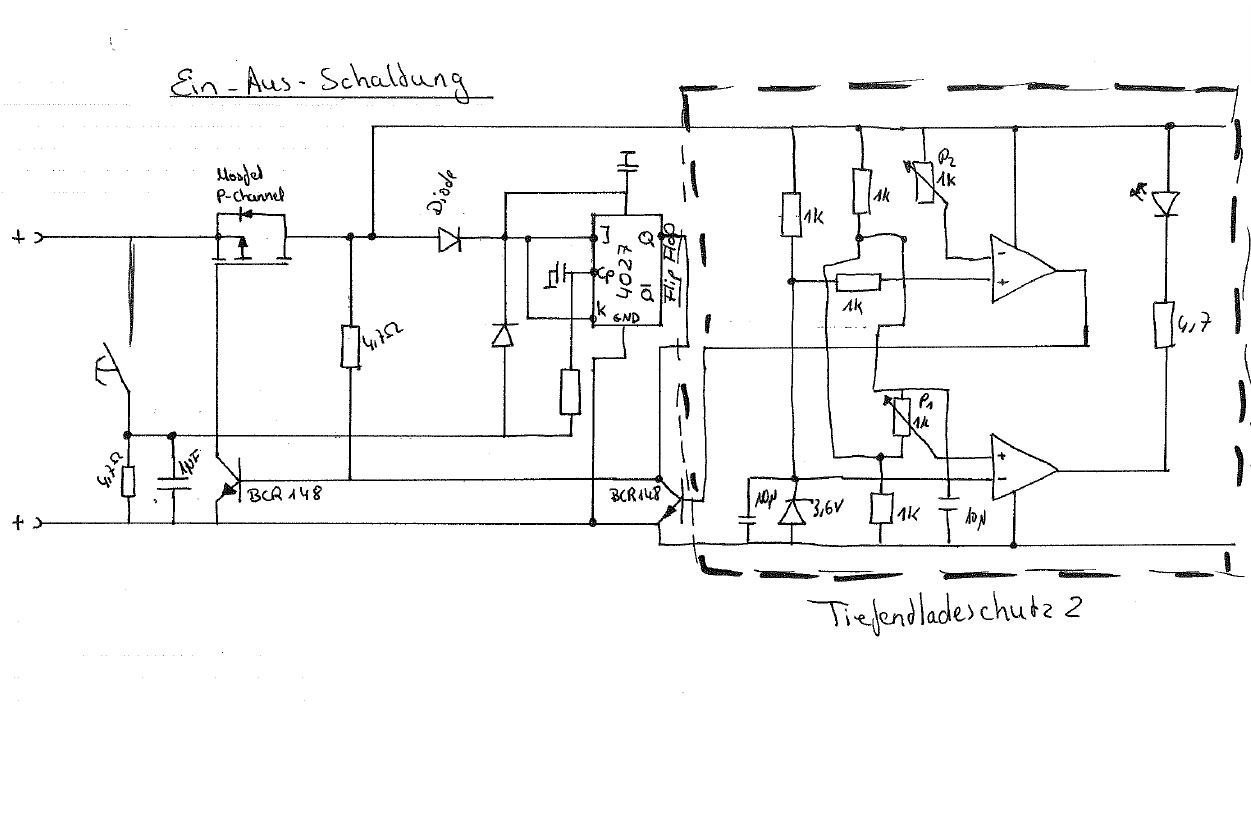 Ein-Aus-Schaldung
Mosfet
P-Channel
Diode
+
4,7Ω
J
Cp
K
4027
GND
Q
Q̅
Flip Flop
4,7Ω
1µF
BCR148
BCR148
+
1K
1K
P2
1K
1K
-
+
4,7
P1
1K
+
-
10µ
3,6V
1K
10µ
Tiefendladeschutz 2